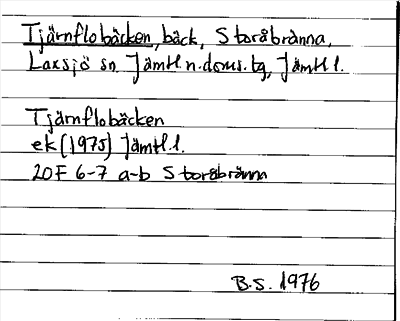 Tjärnflobäcken, bäck, Storåbränna,
Laxsjö sn, Jämtl.n.doms.tg, Jämtl l.
Tjärnflobäcken
ek (1975) Jämtl.l.
20F 6-7 a-b Storåbränna
B.S. 1976